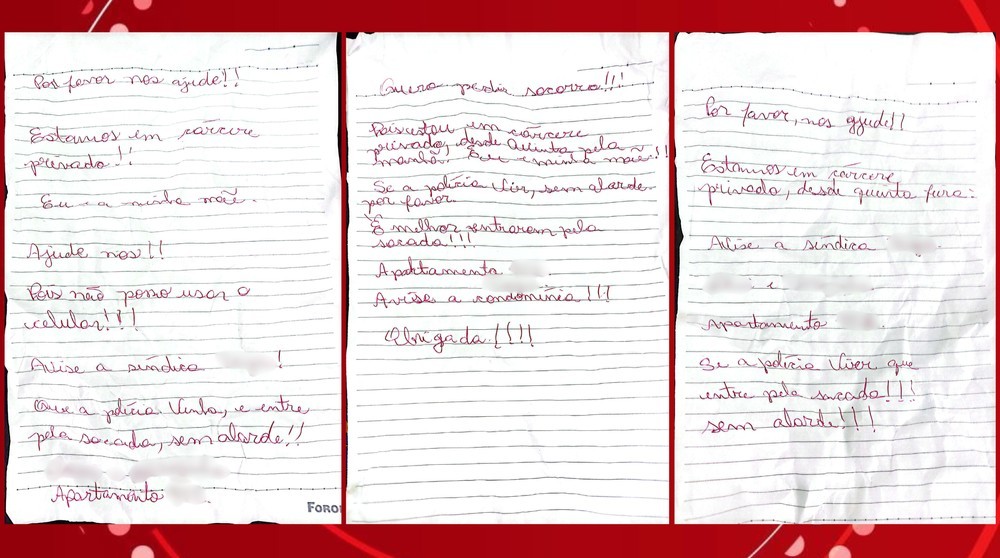 Por favor nos ajude!!
Estamos em cárcere
privado!!
Eu e a minha mãe.
Ajude nos!!
Pois não posso usar o
celular!!!
Avise a síndica !
Que a polícia Venha, e entre
pela sacada, sem alarde!!
Apartamento
Foron
Quero pedir socorro!!!
Pois estou em cárcere
privado, desde Quinta pela
manhã. Eu e minha mãe!!!
Se a polícia Vir, sem alarde
por favor.
É melhor entrarem pela
sacada!!!
Apartamento
Avise a condomínia!!!
Obrigada!!!!
Por favor, nos ajude!!
Estamos em cárcere
privado, desde quinta feira.
Avise a síndica
e
Apartamento
Se a polícia Vier que
entre pela sacada!!!
sem alarde!!!